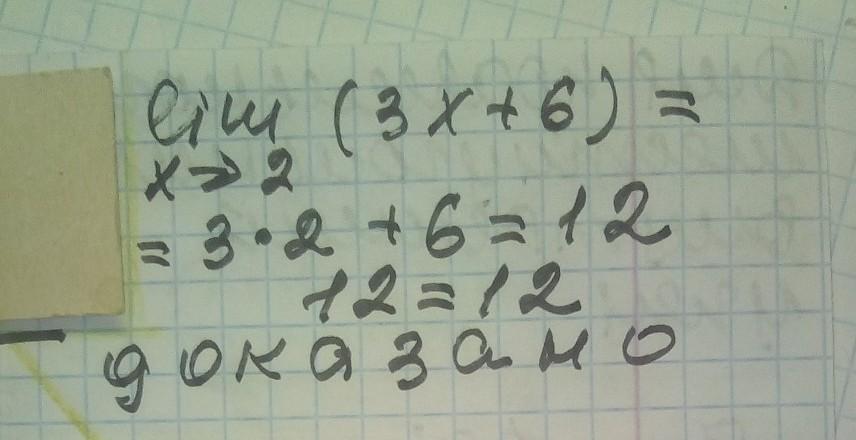 lim (3x+6) =
x→2
= 3·2 + 6 = 12
12 = 12
доказано